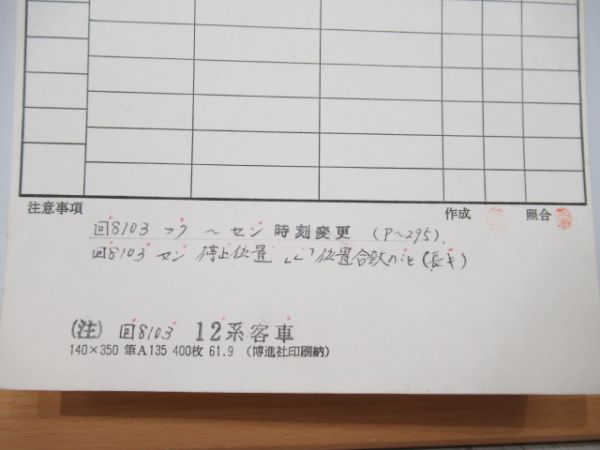 注意事項 作成 照合
回8103 フク 〜 セン 時刻変更 (P〜295).
回8103 セン 停止位置 位置合致のこと(長キ)
(注) 回8103 12系客車
140×350 筆A135 400枚 61.9 (博進社印刷納)